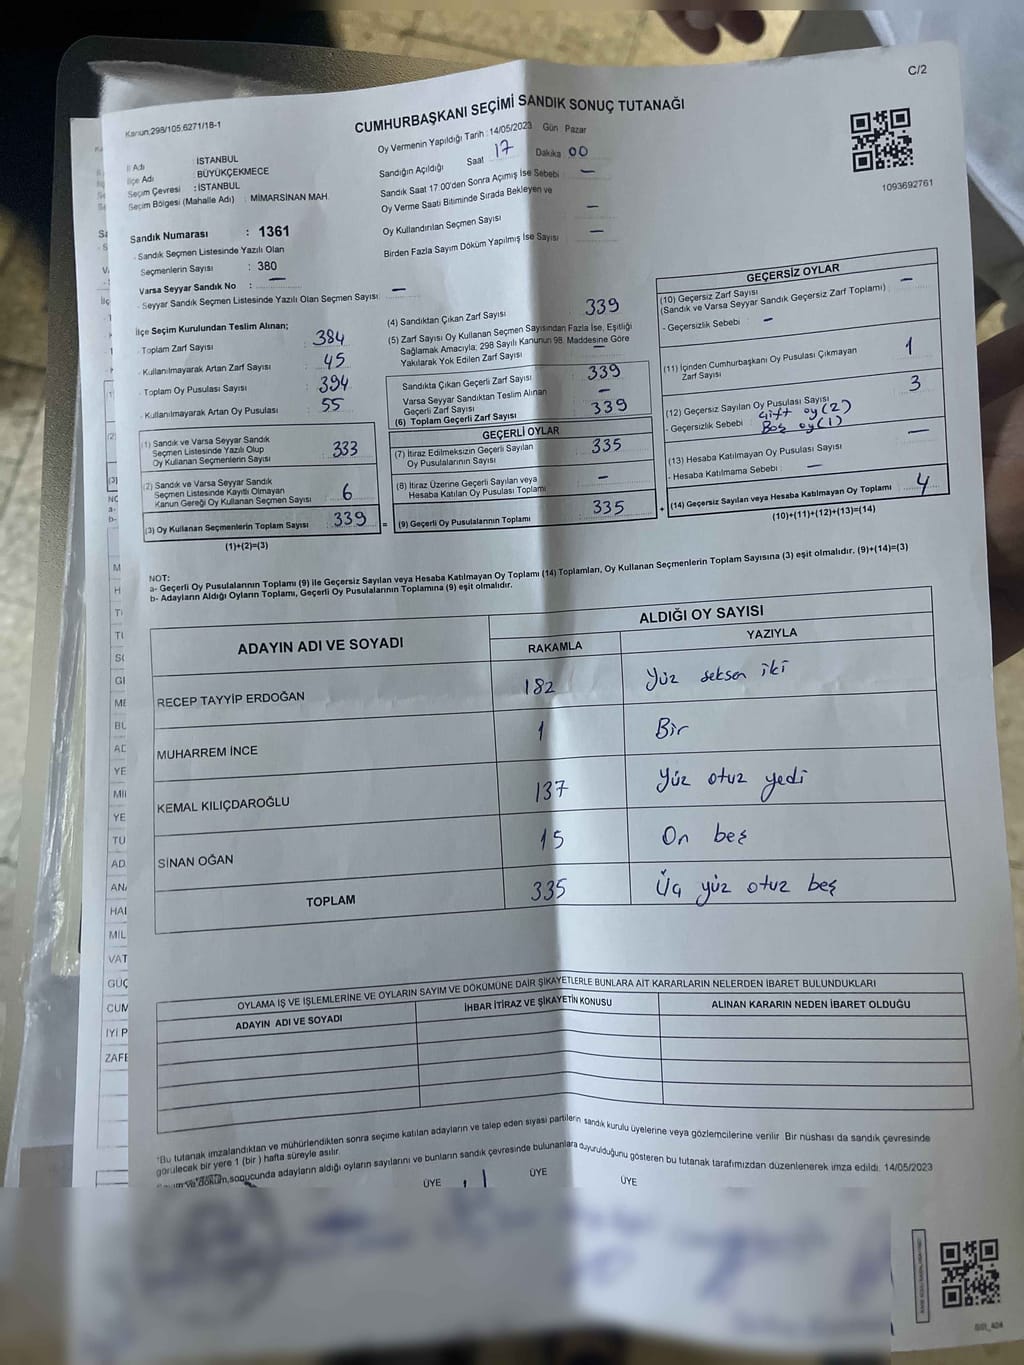 C/2
Kanun,298/105,6271/18-1
CUMHURBAŞKANI SEÇİMİ SANDIK SONUÇ TUTANAĞI
1093692761
İl Adı : İSTANBUL
İlçe Adı : BÜYÜKÇEKMECE
Seçim Çevresi : İSTANBUL
Seçim Bölgesi (Mahalle Adı) : MİMARSİNAN MAH.
Sandık Numarası : 1361
- Sandık Seçmen Listesinde Yazılı Olan
Seçmenlerin Sayısı : 380
Varsa Seyyar Sandık No : —
- Seyyar Sandık Seçmen Listesinde Yazılı Olan Seçmen Sayısı : —
Oy Vermenin Yapıldığı Tarih : 14/05/2023 Gün Pazar
Sandığın Açıldığı Saat 17 Dakika 00
Sandık Saat 17:00'den Sonra Açımış İse Sebebi : —
Oy Verme Saati Bitiminde Sırada Bekleyen ve
Oy Kullandırılan Seçmen Sayısı —
Birden Fazla Sayım Döküm Yapılmış İse Sayısı —
İlçe Seçim Kurulundan Teslim Alınan;
- Toplam Zarf Sayısı : 384
- Kullanılmayarak Artan Zarf Sayısı : 45
- Toplam Oy Pusulası Sayısı : 394
- Kullanılmayarak Artan Oy Pusulası : 55
(1) Sandık ve Varsa Seyyar Sandık
Seçmen Listesinde Yazılı Olup
Oy Kullanan Seçmenlerin Sayısı 333
(2) Sandık ve Varsa Seyyar Sandık
Seçmen Listesinde Kayıtlı Olmayan
Kanun Gereği Oy Kullanan Seçmen Sayısı 6
(3) Oy Kullanan Seçmenlerin Toplam Sayısı 339
(1)+(2)=(3)
=
(4) Sandıktan Çıkan Zarf Sayısı 339
(5) Zarf Sayısı Oy Kullanan Seçmen Sayısından Fazla İse, Eşitliği
Sağlamak Amacıyla, 298 Sayılı Kanunun 98. Maddesine Göre
Yakılarak Yok Edilen Zarf Sayısı —
Sandıkta Çıkan Geçerli Zarf Sayısı : 339
Varsa Seyyar Sandıktan Teslim Alınan
Geçerli Zarf Sayısı : —
(6) Toplam Geçerli Zarf Sayısı 339
GEÇERLİ OYLAR
(7) İtiraz Edilmeksizin Geçerli Sayılan
Oy Pusulalarının Sayısı 335
(8) İtiraz Üzerine Geçerli Sayılan veya
Hesaba Katılan Oy Pusulası Toplamı —
(9) Geçerli Oy Pusulalarının Toplamı 335
+
GEÇERSİZ OYLAR
(10) Geçersiz Zarf Sayısı
(Sandık ve Varsa Seyyar Sandık Geçersiz Zarf Toplamı) —
- Geçersizlik Sebebi : —
(11) İçinden Cumhurbaşkanı Oy Pusulası Çıkmayan
Zarf Sayısı 1
(12) Geçersiz Sayılan Oy Pusulası Sayısı 3
- Geçersizlik Sebebi : Çift oy (2)
Boş oy (1)
(13) Hesaba Katılmayan Oy Pusulası Sayısı —
- Hesaba Katılmama Sebebi : —
(14) Geçersiz Sayılan veya Hesaba Katılmayan Oy Toplamı 4
(10)+(11)+(12)+(13)=(14)
NOT:
a- Geçerli Oy Pusulalarının Toplamı (9) ile Geçersiz Sayılan veya Hesaba Katılmayan Oy Toplamı (14) Toplamları, Oy Kullanan Seçmenlerin Toplam Sayısına (3) eşit olmalıdır. (9)+(14)=(3)
b- Adayların Aldığı Oyların Toplamı, Geçerli Oy Pusulalarının Toplamına (9) eşit olmalıdır.
ADAYIN ADI VE SOYADI
ALDIĞI OY SAYISI
RAKAMLA YAZIYLA
RECEP TAYYİP ERDOĞAN 182 Yüz seksen iki
MUHARREM İNCE 1 Bir
KEMAL KILIÇDAROĞLU 137 Yüz otuz yedi
SİNAN OĞAN 15 On beş
TOPLAM 335 Üç yüz otuz beş
OYLAMA İŞ VE İŞLEMLERİNE VE OYLARIN SAYIM VE DÖKÜMÜNE DAİR ŞİKAYETLERLE BUNLARA AİT KARARLARIN NELERDEN İBARET BULUNDUKLARI
ADAYIN ADI VE SOYADI İHBAR İTİRAZ VE ŞİKAYETİN KONUSU ALINAN KARARIN NEDEN İBARET OLDUĞU
"Bu tutanak imzalandıktan ve mühürlendikten sonra seçime katılan adayların ve talep eden siyasi partilerin sandık kurulu üyelerine veya gözlemcilerine verilir. Bir nüshası da sandık çevresinde
görülecek bir yere 1 (bir ) hafta süreyle asılır.
ve döküm sonucunda adayların aldığı oyların sayılarını ve bunların sandık çevresinde bulunanlara duyurulduğunu gösteren bu tutanak tarafımızdan düzenlenerek imza edildi. 14/05/2023
ÜYE ÜYE ÜYE